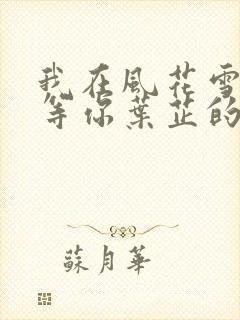 我在風花雪
等你葉芷的
蘇月華